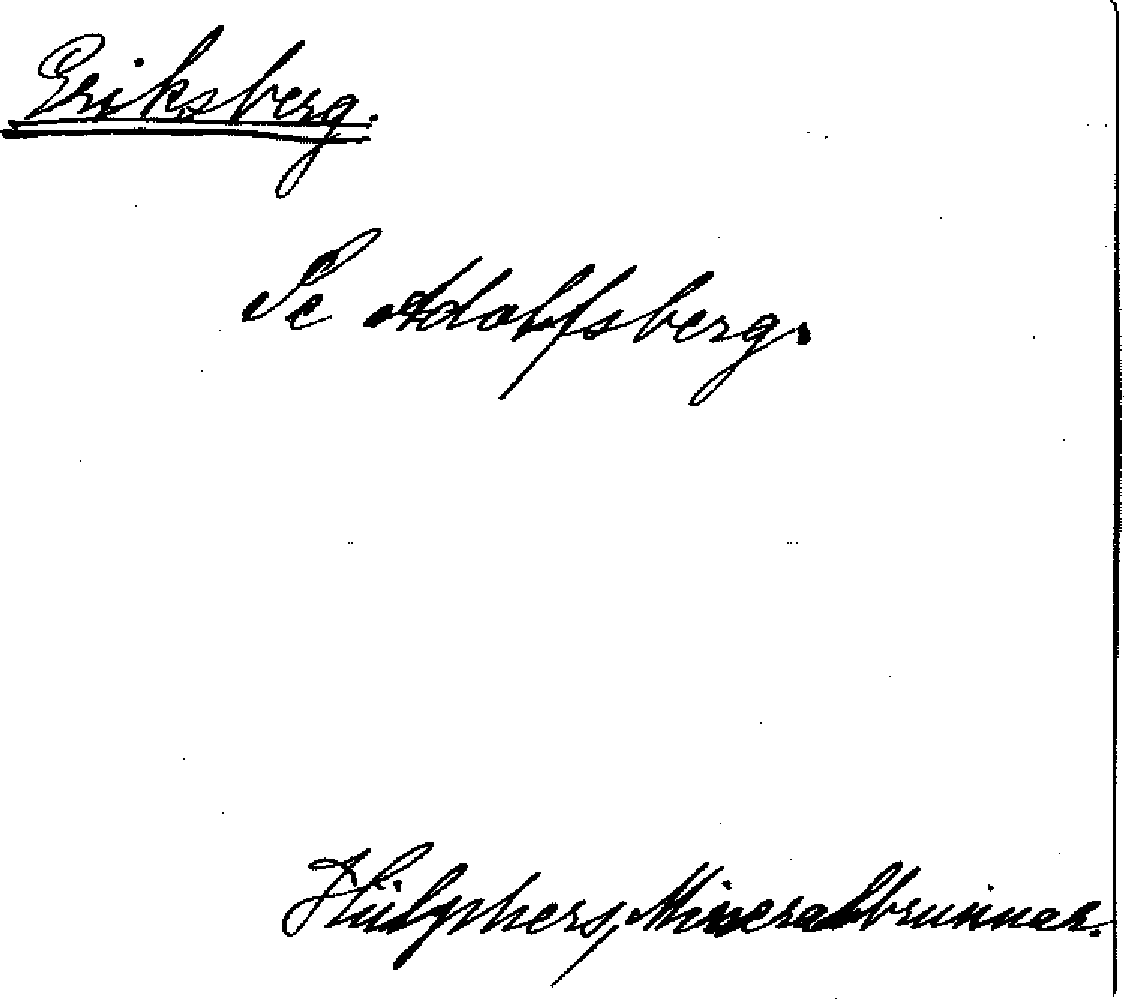 Eriksberg.
Se Adolfsberg.
Hülphers, Mineralbrunnar.